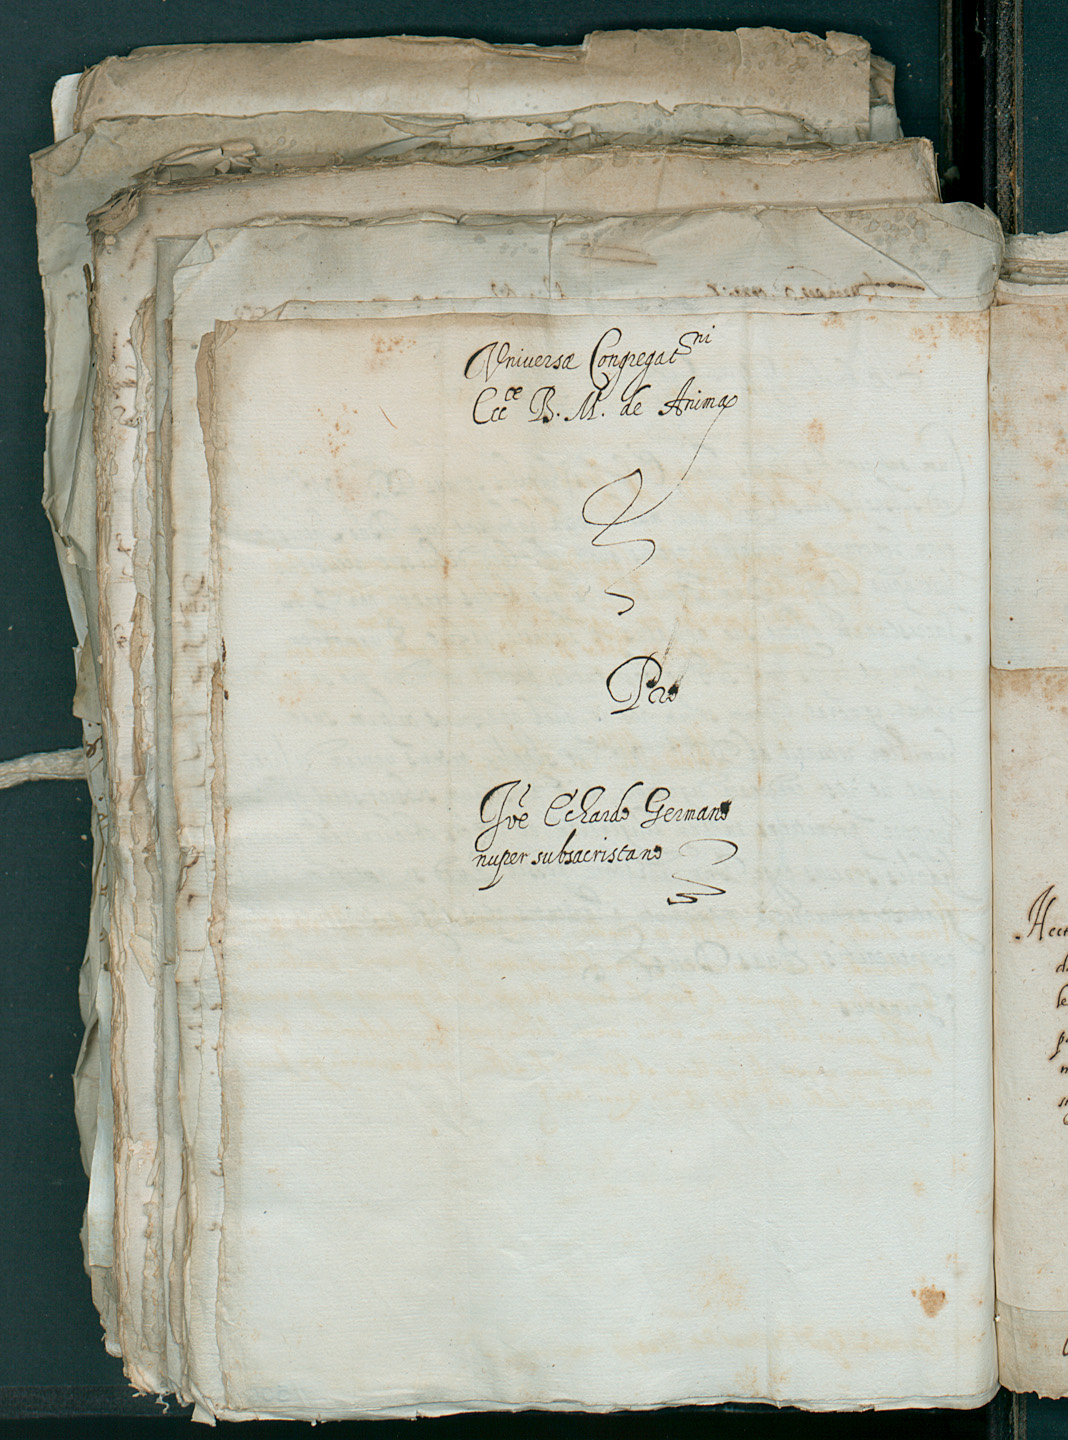 Vniuersæ Congregat^ni
Ecc^ce B. M. de Anima
Pro
Jōe Echardo Germano
nuper subsacristano